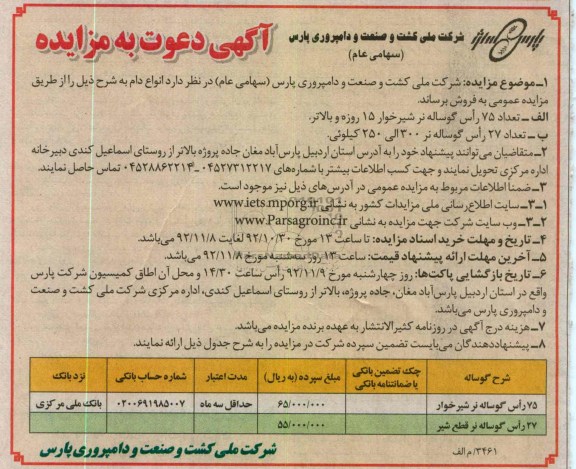 پارس
شرکت ملی کشت و صنعت و دامپروری پارس
(سهامی عام)
آگهی دعوت به مزایده
۱ـ موضوع مزایده: شرکت ملی کشت و صنعت و دامپروری پارس (سهامی عام) در نظر دارد انواع دام به شرح ذیل را از طریق
مزایده عمومی به فروش برساند.
الف ـ تعداد ۷۵ رأس گوساله نر شیرخوار ۱۵ روزه و بالاتر.
ب ـ تعداد ۲۷ رأس گوساله نر ۳۰۰ الی ۲۵۰ کیلوئی.
۲ـ متقاضیان می‌توانند پیشنهاد خود را به آدرس استان اردبیل پارس‌آباد مغان جاده پروژه بالاتر از روستای اسماعیل کندی دبیرخانه
اداره مرکزی تحویل نمایند و جهت کسب اطلاعات بیشتر با شماره‌های ۰۴۵۲۷۳۱۲۲۱۷ ـ ۰۴۵۲۸۸۶۲۲۱۴ تماس حاصل نمایند.
۳ـ ضمنا اطلاعات مربوط به مزایده عمومی در آدرس‌های ذیل نیز موجود است.
۳ـ۱ـ سایت اطلاع‌رسانی ملی مزایدات کشور به نشانی www.iets.mporg.ir
۳ـ۲ـ وب سایت شرکت جهت مزایده به نشانی www.Parsagroinc.ir
۴ـ تاریخ و مهلت خرید اسناد مزایده: تا ساعت ۱۳ مورخ ۹۲/۱۰/۳۰ لغایت ۹۲/۱۱/۸ می‌باشد.
۵ـ آخرین مهلت ارائه پیشنهاد قیمت: ساعت ۱۳ روز سه‌شنبه مورخ ۹۲/۱۱/۸ می‌باشد.
۶ـ تاریخ بازگشایی پاکت‌ها: روز چهارشنبه مورخ ۹۲/۱۱/۹ رأس ساعت ۱۴/۳۰ و محل آن اطاق کمیسیون شرکت پارس
واقع در استان اردبیل پارس‌آباد مغان، جاده پروژه، بالاتر از روستای اسماعیل کندی، اداره مرکزی شرکت ملی کشت و صنعت
و دامپروری پارس می‌باشد.
۷ـ هزینه درج آگهی در روزنامه کثیرالانتشار به عهده برنده مزایده می‌باشد.
۸ـ پیشنهاددهندگان می‌بایست تضمین سپرده شرکت در مزایده را به شرح جدول ذیل ارائه نمایند.
شرح گوساله | چک تضمین بانکی یا ضمانتنامه بانکی | مبلغ سپرده (به ریال) | مدت اعتبار | شماره حساب بانکی | نزد بانک
۷۵ رأس گوساله نر شیرخوار | ۶۵/۰۰۰/۰۰۰ | حداقل سه ماه | ۰۲۰۰۶۹۱۹۸۵۰۰۷ | بانک ملی مرکزی
۲۷ رأس گوساله نر قطع شیر | ۵۵/۰۰۰/۰۰۰
۳۴۶۱/م الف
شرکت ملی کشت و صنعت و دامپروری پارس